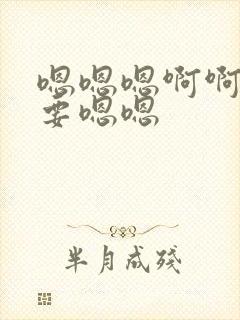 嗯嗯嗯啊啊
要嗯嗯
半月成残